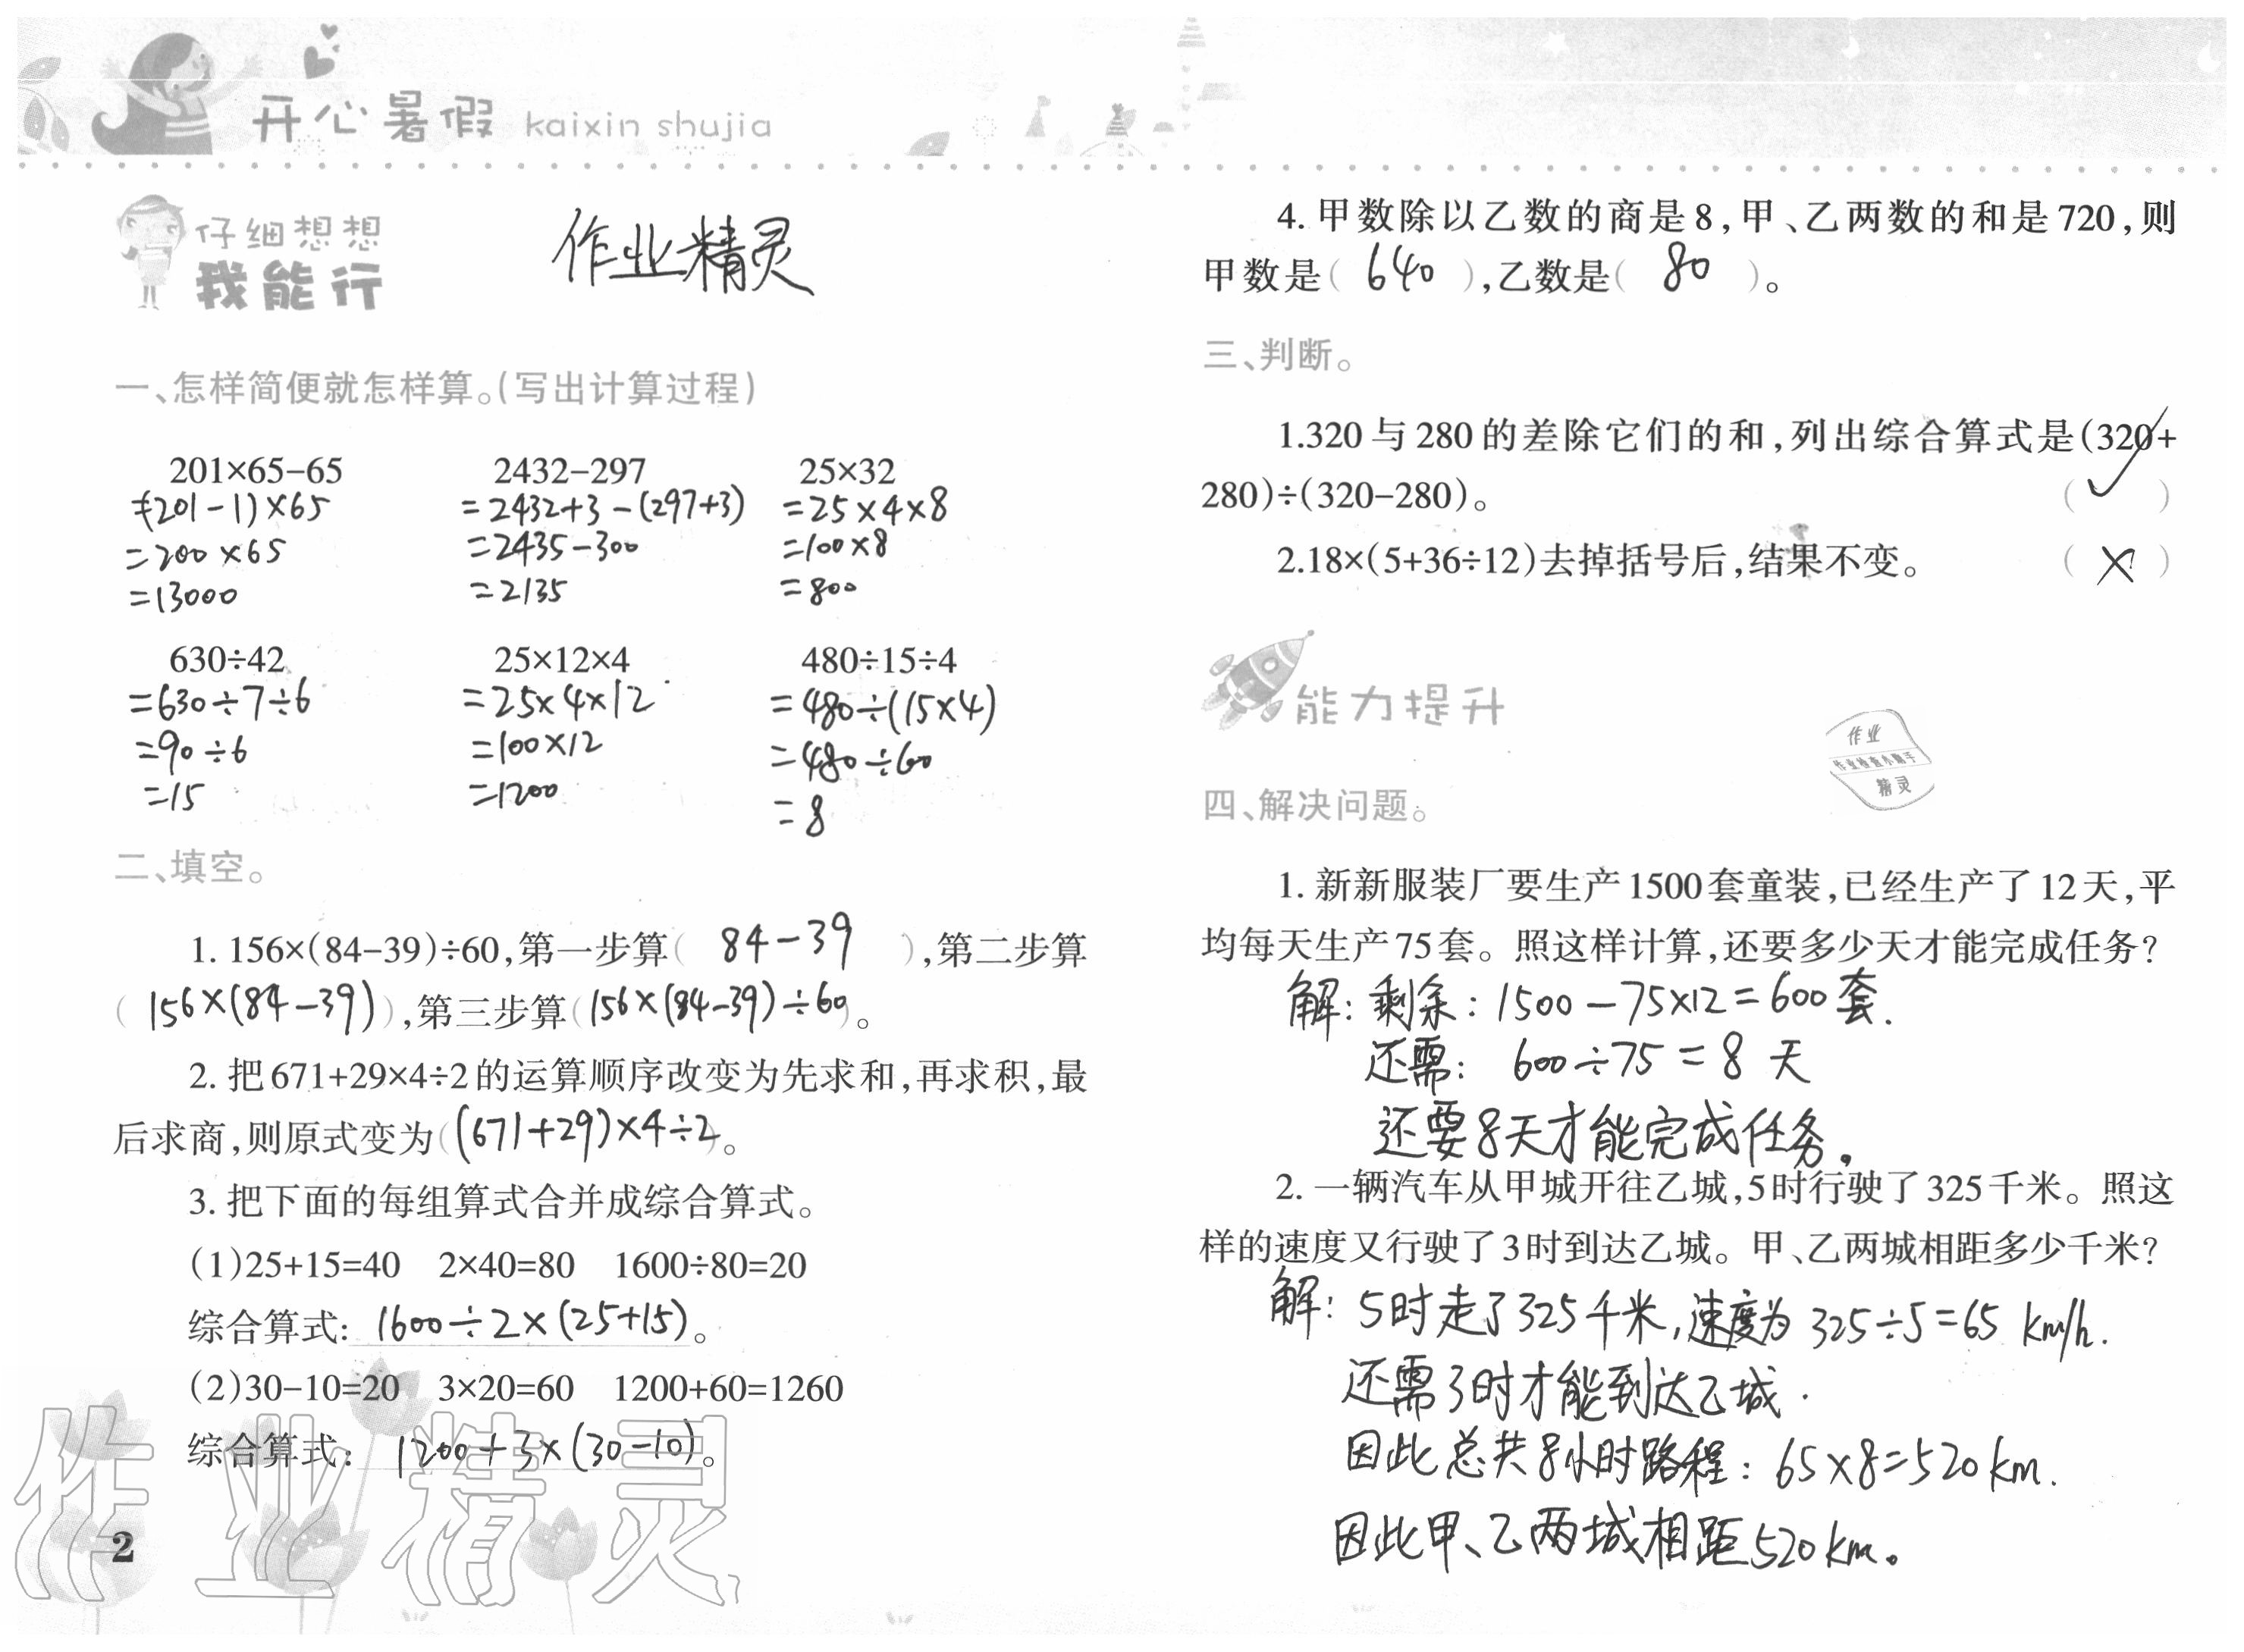 开心暑假 kaixin shujia
仔细想想
我能行
作业精灵
一、怎样简便就怎样算。(写出计算过程)
201×65-65 2432-297 25×32
=(201-1)×65 =2432+3-(297+3) =25×4×8
=200×65 =2435-300 =100×8
=13000 =2135 =800
630÷42 25×12×4 480÷15÷4
=630÷7÷6 =25×4×12 =480÷(15×4)
=90÷6 =100×12 =480÷60
=15 =1200 =8
二、填空。
1. 156×(84-39)÷60,第一步算( 84-39 ),第二步算
( 156×(84-39) ),第三步算( 156×(84-39)÷60 )。
2. 把671+29×4÷2的运算顺序改变为先求和,再求积,最
后求商,则原式变为( (671+29)×4÷2 )。
3. 把下面的每组算式合并成综合算式。
(1)25+15=40 2×40=80 1600÷80=20
综合算式: 1600÷2×(25+15)。
(2)30-10=20 3×20=60 1200+60=1260
综合算式: 1200+3×(30-10)。
作业精灵
2
4. 甲数除以乙数的商是8,甲、乙两数的和是720,则
甲数是( 640 ),乙数是( 80 )。
三、判断。
1.320与280的差除它们的和,列出综合算式是(320+
280)÷(320-280)。 ( ✓ )
2.18×(5+36÷12)去掉括号后,结果不变。 ( × )
能力提升
作业
作业检查小助手
精灵
四、解决问题。
1. 新新服装厂要生产1500套童装,已经生产了12天,平
均每天生产75套。照这样计算,还要多少天才能完成任务?
解: 剩余: 1500-75×12=600套.
还需: 600÷75=8 天
还要8天才能完成任务。
2. 一辆汽车从甲城开往乙城,5时行驶了325千米。照这
样的速度又行驶了3时到达乙城。甲、乙两城相距多少千米?
解: 5时走了325千米,速度为 325÷5=65 km/h.
还需3时才能到达乙城.
因此总共8小时路程: 65×8=520km.
因此甲、乙两城相距520km。